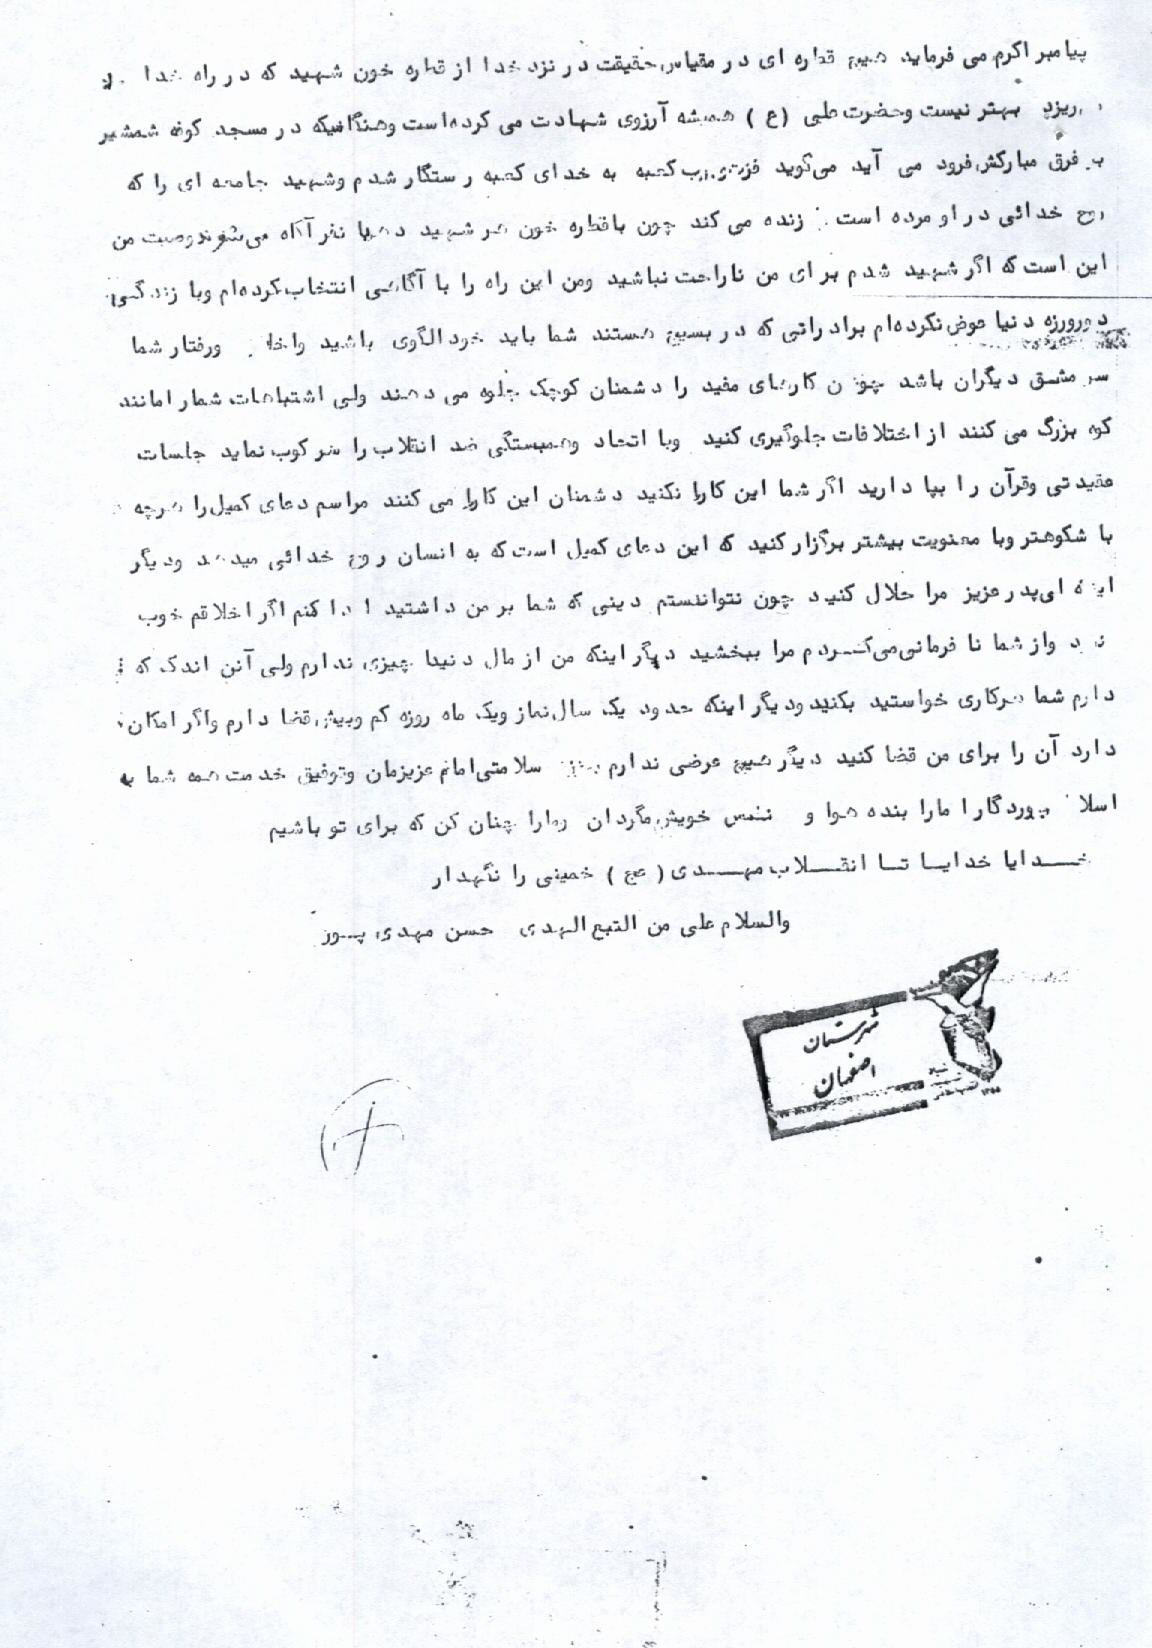 پیامبر اکرم می فرماید هیچ قطره ای در مقیاس حقیقت در نزد خدا از قطره خون شهید که در راه خدا
ریزد بهتر نیست وحضرت علی (ع) همیشه آرزوی شهادت می کرده است وهنگامیکه در مسجد کوفه شمشیر
بر فرق مبارکش فرود می آید می‌گوید فزت ورب کعبه به خدای کعبه رستگار شدم وشهید جامعه ای را که
روح خدائی در او مرده است زنده می کند چون باقطره خون هر شهید دهها نفر آگاه می‌شوند وصیت من
این است که اگر شهید شدم برای من ناراحت نباشید ومن این راه را با آگاهی انتخاب کرده‌ام وبا زندگی
دوروزه دنیا عوض نکرده‌ام برادرانی که در بسیج هستند شما باید خود الگوی باشید ورفتار شما
سر مشق دیگران باشد چون کارهای مفید را دشمنان کوچک جلوه می دهند ولی اشتباهات شمار امانند
کوه بزرگ می کنند از اختلافات جلوگیری کنید وبا اتحاد وهمبستگی ضد انقلاب را سرکوب نماید جلسات
عقیدتی وقرآن را بپا دارید اگر شما این کار را نکنید دشمنان این کار را می کنند مراسم دعای کمیل را هرچه
با شکوهتر وبا معنویت بیشتر برگزار کنید که این دعای کمیل است که به انسان روح خدائی میدهد ودیگر
اینکه ای‌پدر عزیز مرا حلال کنید چون نتوانستم دینی که شما بر من داشتید ادا کنم اگر اخلاقم خوب
نبود واز شما نا فرمانی‌می‌کردم مرا ببخشید دیگر اینکه من از مال دنیا چیزی ندارم ولی آنن اندک که
دارم شما هرکاری خواستید بکنید ودیگر اینکه حدود یک سال نماز ویک ماه روزه کم وبیش قضا دارم واگر امکان
دارد آن را برای من قضا کنید دیگر هیچ عرضی ندارم بجز سلامتی‌امام عزیزمان وتوفیق خدمت همه شما به
اسلام پروردگارا مارا بنده هوا و نفس خویش مگردان ومارا چنان کن که برای تو باشیم
خدایا خدایا تا انقلاب مهدی (عج) خمینی را نگهدار
والسلام علی من التبع الهدی حسن مهدی پور
شهرستان
اصفهان